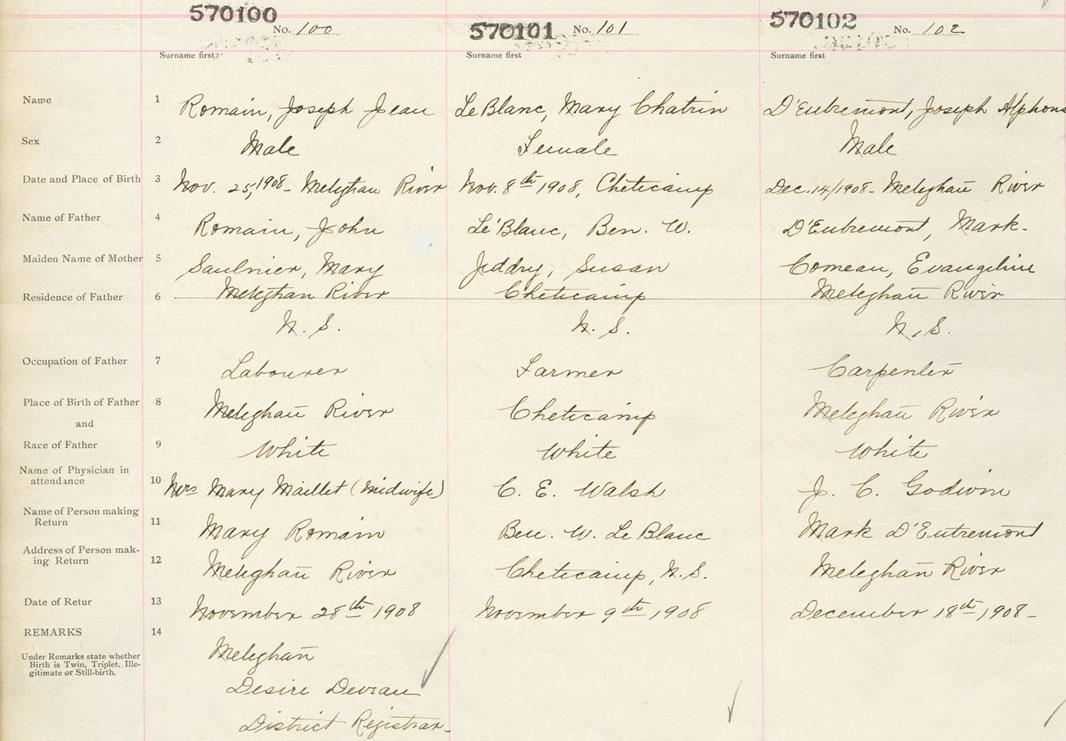 570100 No. 100 570101 No. 101 570102 No. 102
Surname first Surname first Surname first
Name 1 Romain, Joseph Jean LeBlanc, Mary Chatrin D'Eutremont, Joseph Alphons
Sex 2 Male Female Male
Date and Place of Birth 3 Nov. 25, 1908- Meteghan River Nov. 8th 1908, Cheticamp Dec. 14/1908- Meteghan River
Name of Father 4 Romain, John Le'Blanc, Ben. W. D'Eutremont, Mark-
Maiden Name of Mother 5 Saulnier, Mary Jeddry, Susan Comeau, Evangeline
Residence of Father 6 Meteghan River Cheticamp Meteghan River
N. S. N. S. N. S.
Occupation of Father 7 Labourer Farmer Carpenter
Place of Birth of Father 8 Meteghan River Cheticamp Meteghan River
and
Race of Father 9 White White White
Name of Physician in
attendance 10 Mrs Mary Maillet (Midwife) C. E. Walsh J. C. Godwin
Name of Person making
Return 11 Mary Romain Ben. W. Le Blanc Mark D'Eutremont
Address of Person mak-
ing Return 12 Meteghan River Cheticamp, N.S. Meteghan River
Date of Retur 13 November 28th 1908 November 9th 1908 December 18th, 1908-
REMARKS 14
Under Remarks state whether
Birth is Twin, Triplet, Ille-
gitimate or Still-birth.
Meteghan
Desire Deveau
District Registrar.